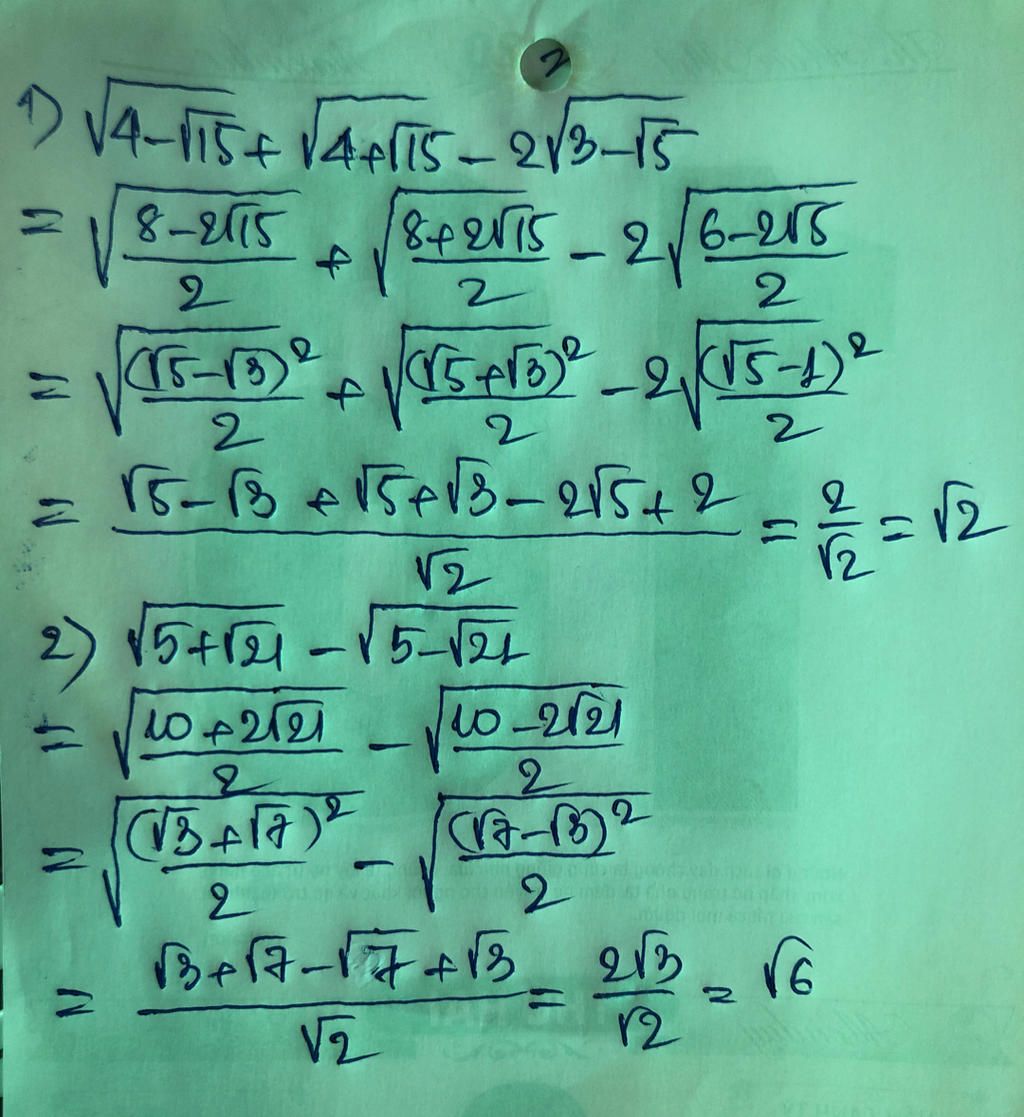 2
1) √(4-√15) + √(4+√15) - 2√(3-√5)
= √((8-2√15)/2) + √((8+2√15)/2) - 2√((6-2√5)/2)
= √((√5-√3)²/2) + √((√5+√3)²/2) - 2√((√5-1)²/2)
= (√5-√3+√5+√3-2√5+2)/√2 = 2/√2 = √2
2) √(5+√21) - √(5-√21)
= √((10+2√21)/2) - √((10-2√21)/2)
= √((√3+√7)²/2) - √((√7-√3)²/2)
= (√3+√7-√7+√3)/√2 = 2√3/√2 = √6